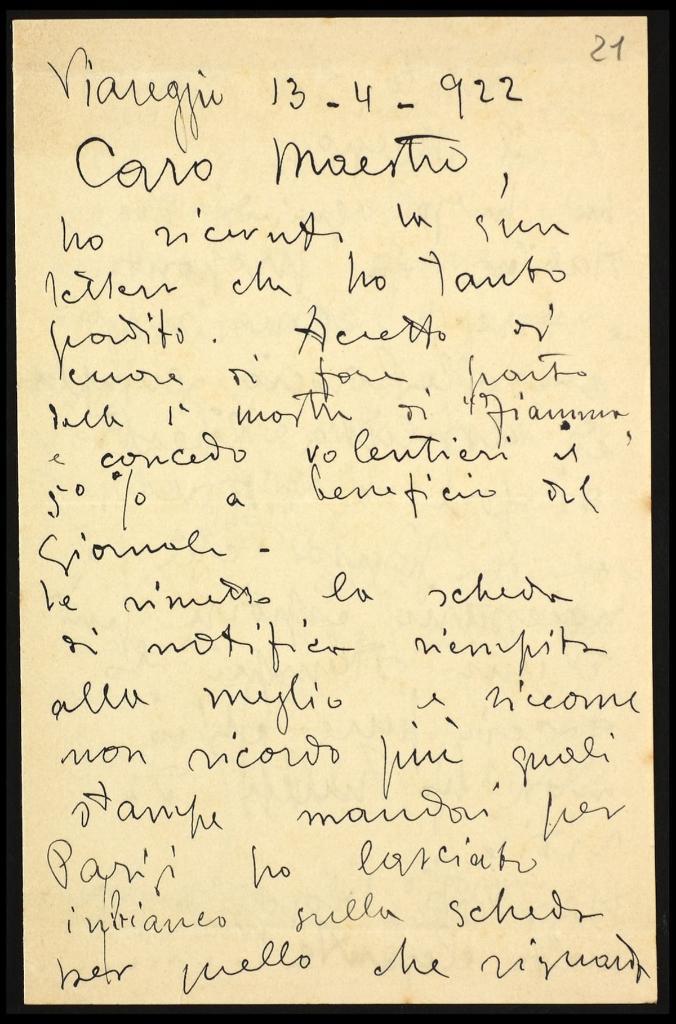 21
Viareggio 13-4-922
Caro Maestro,
ho ricevuto la sua
lettera che ho tanto
gradito. Accetto di
cuore di fare parte
della 1ª mostra di "Fiamma"
e concedo volentieri il
5% a beneficio del
Giornale -
Le rimetto la scheda
di notifica riempita
alla meglio e siccome
non ricordo più quali
stampe mandai per
Parigi ho lasciato
in bianco sulla scheda
per quello che riguarda